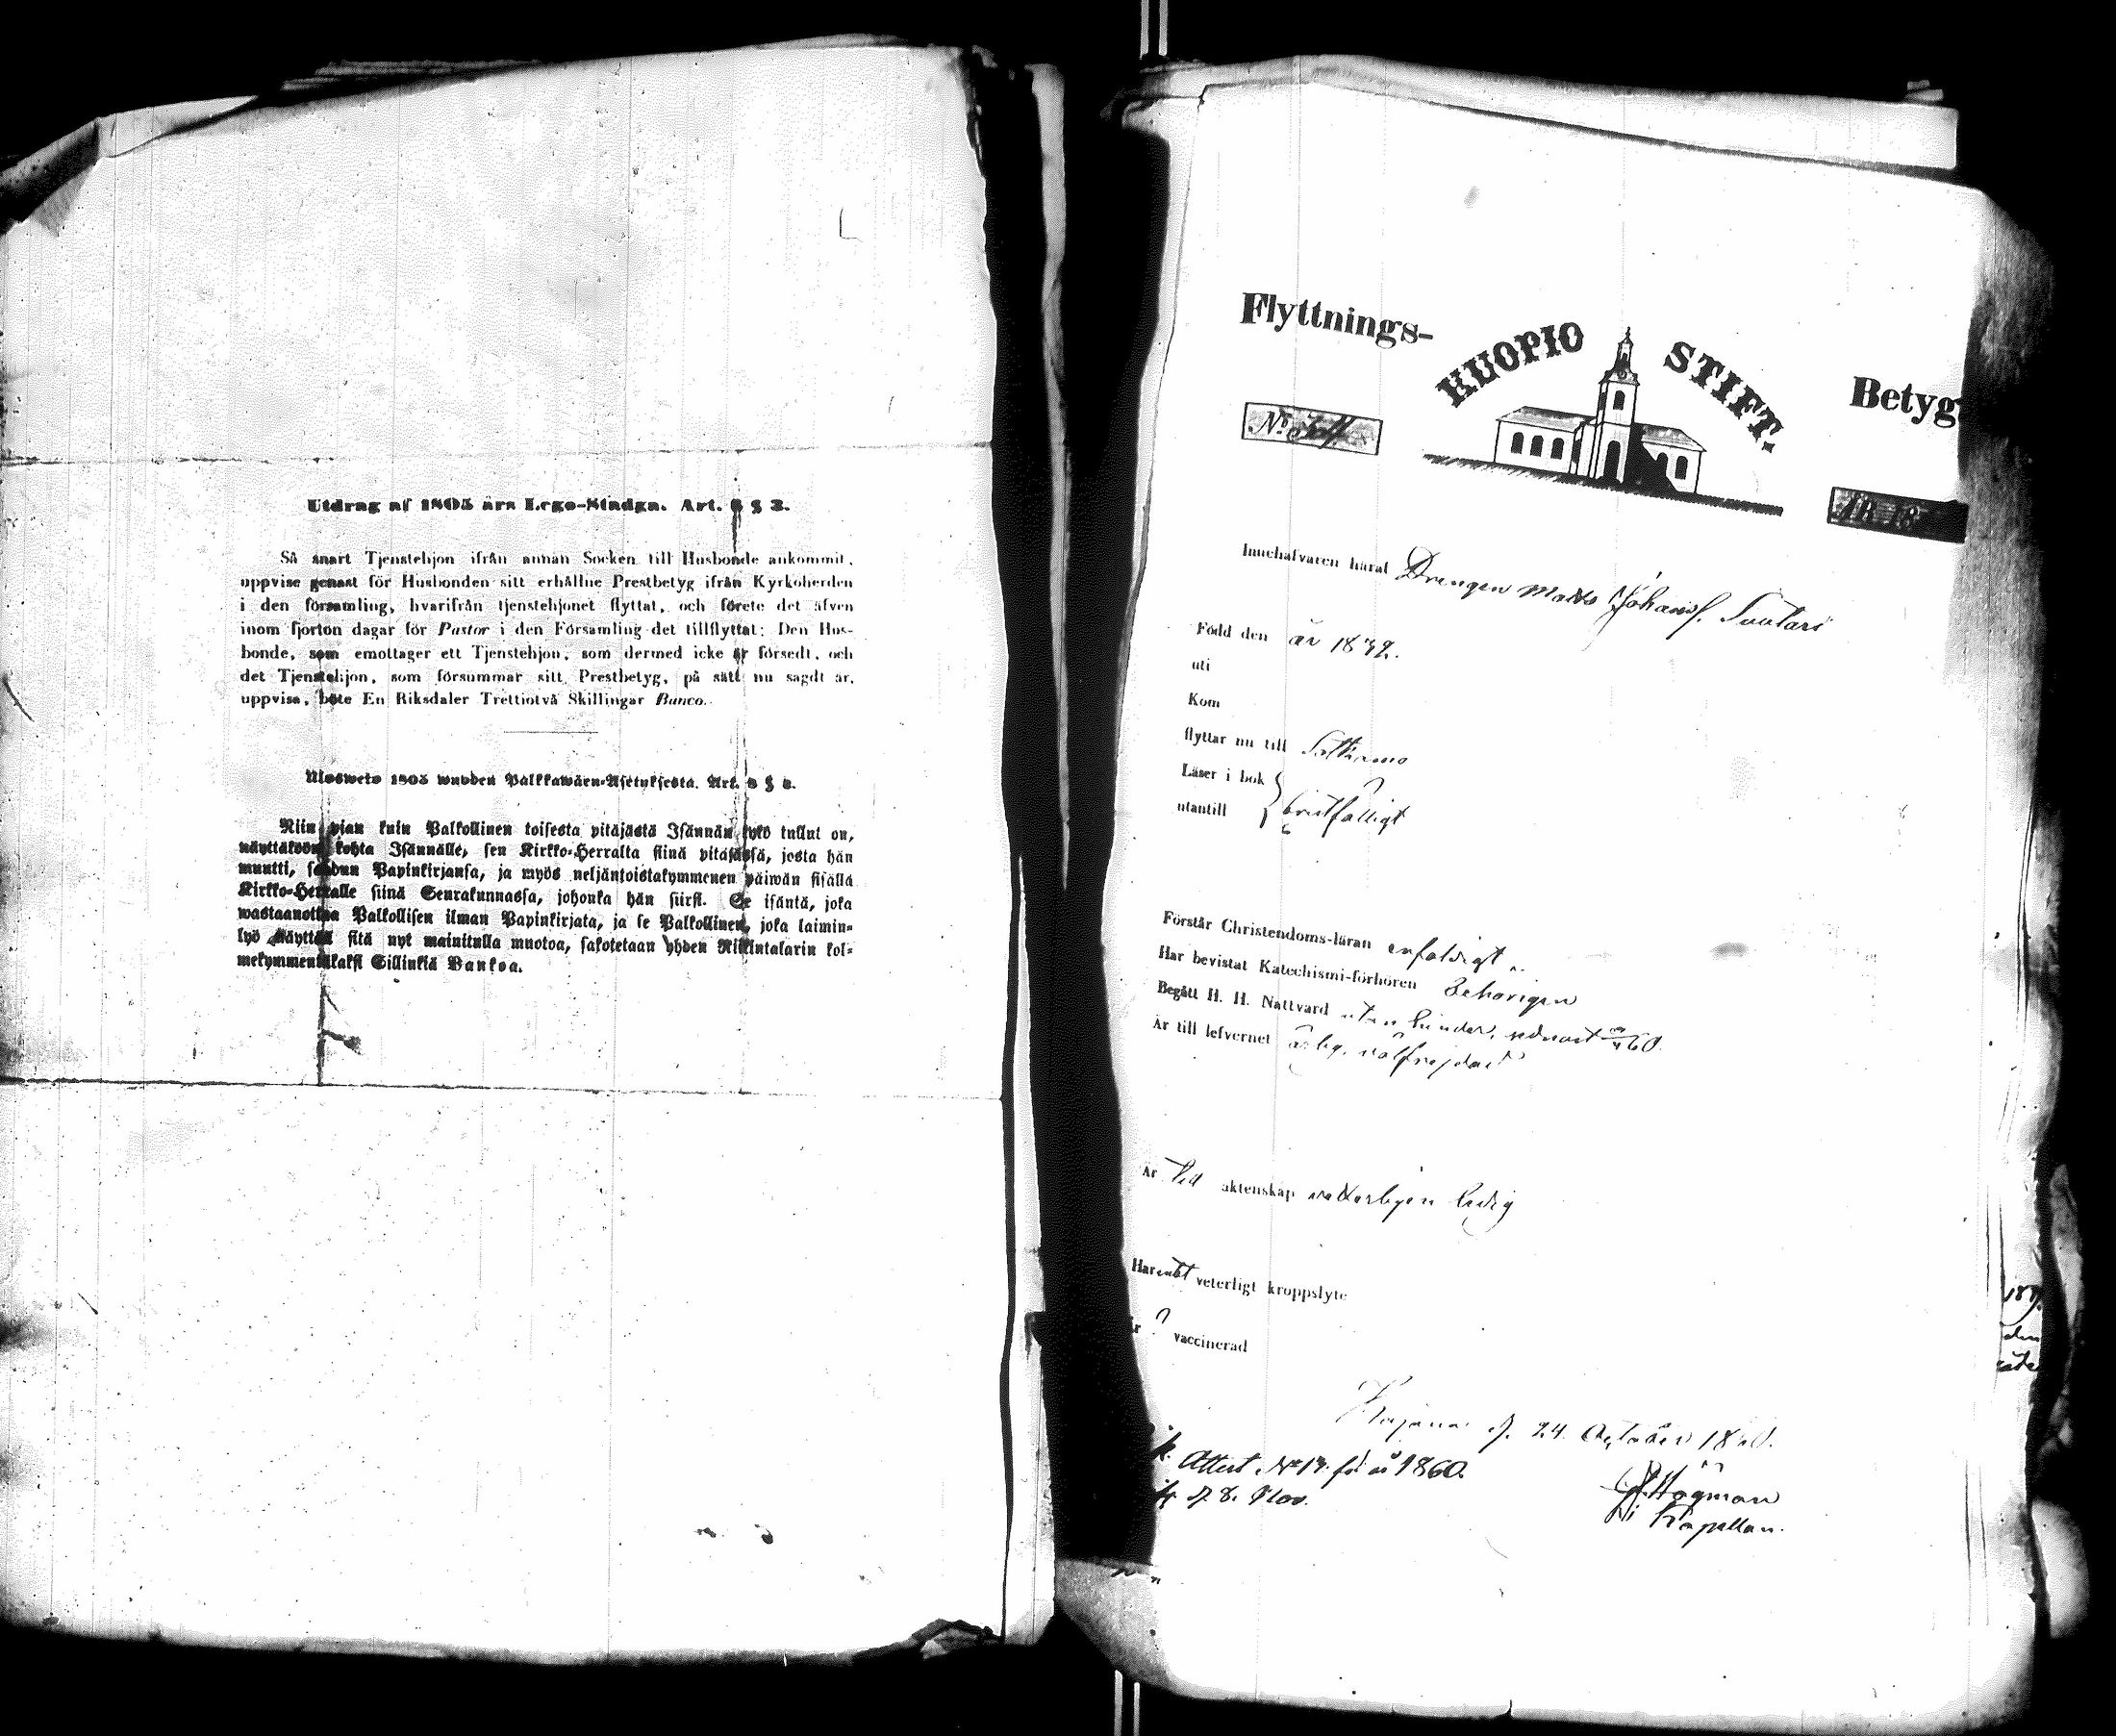 Utdrag af 1805 års Lego-Stadgn. Art. 8 § 3.
Så snart Tjenstehjon ifrån annan Socken till Husbonde ankommit,
uppvise genast för Husbonden sitt erhållne Prestbetyg ifrån Kyrkoherden
i den församling, hvarifrån tjenstehjonet flyttat, och förete det äfven
inom fjorton dagar för Pastor i den Församling det tillflyttat: Den Hus-
bonde, som emottager ett Tjenstehjon, som dermed icke är försedt, och
det Tjenstehjon, som försummar sitt Prestbetyg, på sätt nu sagdt är,
uppvisa, böte En Riksdaler Trettiotvå Skillingar Banco.
Ulosweto 1805 wuoden Palkkawäen-Asetuksesta. Art. 8 §
Niin pian kuin Palkollinen toisesta pitäjästä Isännän tykö tullut on,
näyttäköön kohta Isännälle, sen Kirkko-Herralta siinä pitäjässä, josta hän
muutti, saadun Papinkirjansa, ja myös neljäntoistakymmenen päiwän sisällä
Kirkko-Herralle siinä Seurakunnassa, johonka hän siirsi. Se isäntä, joka
wastaanottaa Palkollisen ilman Papinkirjata, ja se Palkollinen, joka laimin-
lyö näyttää sitä nyt mainitulla muotoa, sakotetaan yhden Riikintalarin kol-
mekymmentäkaksi Sillinkiä Bankoa.
Flyttnings- KUOPIO STIFT. Betyg
No
ÅR 18
Innehafvaren häraf Drengen Matts Johansf. Suutari
Född den år 1842.
uti
Kom
flyttar nu till Sotkamo
Läser i bok
utantill } bristfälligt
Förstår Christendoms-läran enfaldigt
Har bevistat Katechismi-förhören Behörigen
Begått H. H. Nattvard utan hinder, sednast 60.
Är till lefvernet ärlig, välfrejdad
Är till äktenskap vetterligen ledig
Har intet veterligt kroppslyte
Är vaccinerad
Kajana d. 24 October 1860.
Attest. No 13. för år 1860.
d. 8. Nov.
Högman
Kapellan.